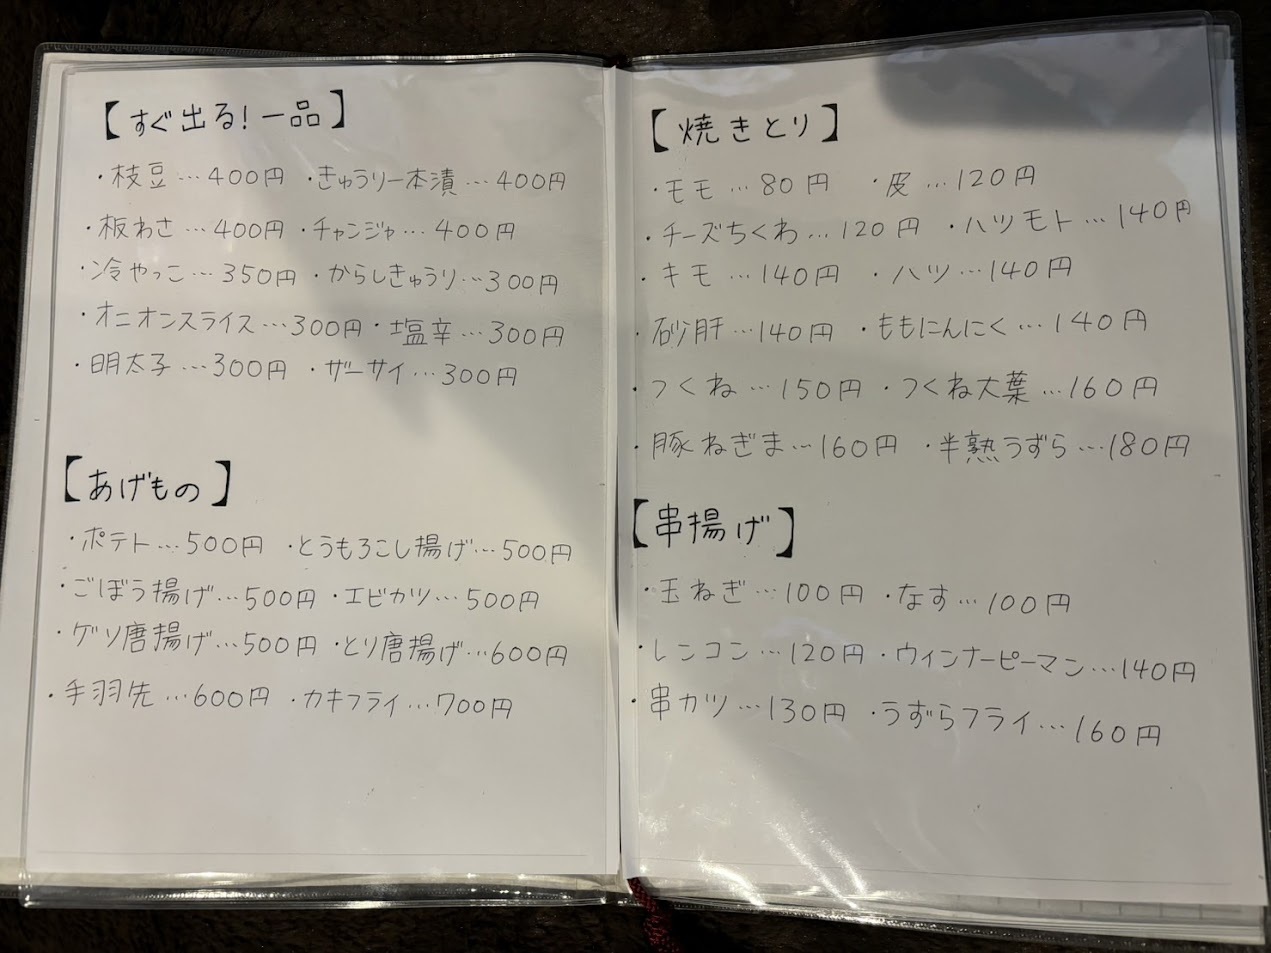 【すぐ出る!一品】
・枝豆…400円 ・きゅうり一本漬…400円
・板わさ…400円 ・チャンジャ…400円
・冷やっこ…350円 ・からしきゅうり…300円
・オニオンスライス…300円 ・塩辛…300円
・明太子…300円 ・ザーサイ…300円
【あげもの】
・ポテト…500円 ・とうもろこし揚げ…500円
・ごぼう揚げ…500円 ・エビカツ…500円
・ゲソ唐揚げ…500円 ・とり唐揚げ…600円
・手羽先…600円 ・カキフライ…700円
【焼きとり】
・モモ…80円 ・皮…120円
・チーズちくわ…120円 ・ハツモト…140円
・キモ…140円 ・ハツ…140円
・砂肝…140円 ・ももにんにく…140円
・つくね…150円 ・つくね大葉…160円
・豚ねぎま…160円 ・半熟うずら…180円
【串揚げ】
・玉ねぎ…100円 ・なす…100円
・レンコン…120円 ・ウィンナーピーマン…140円
・串カツ…130円 ・うずらフライ…160円